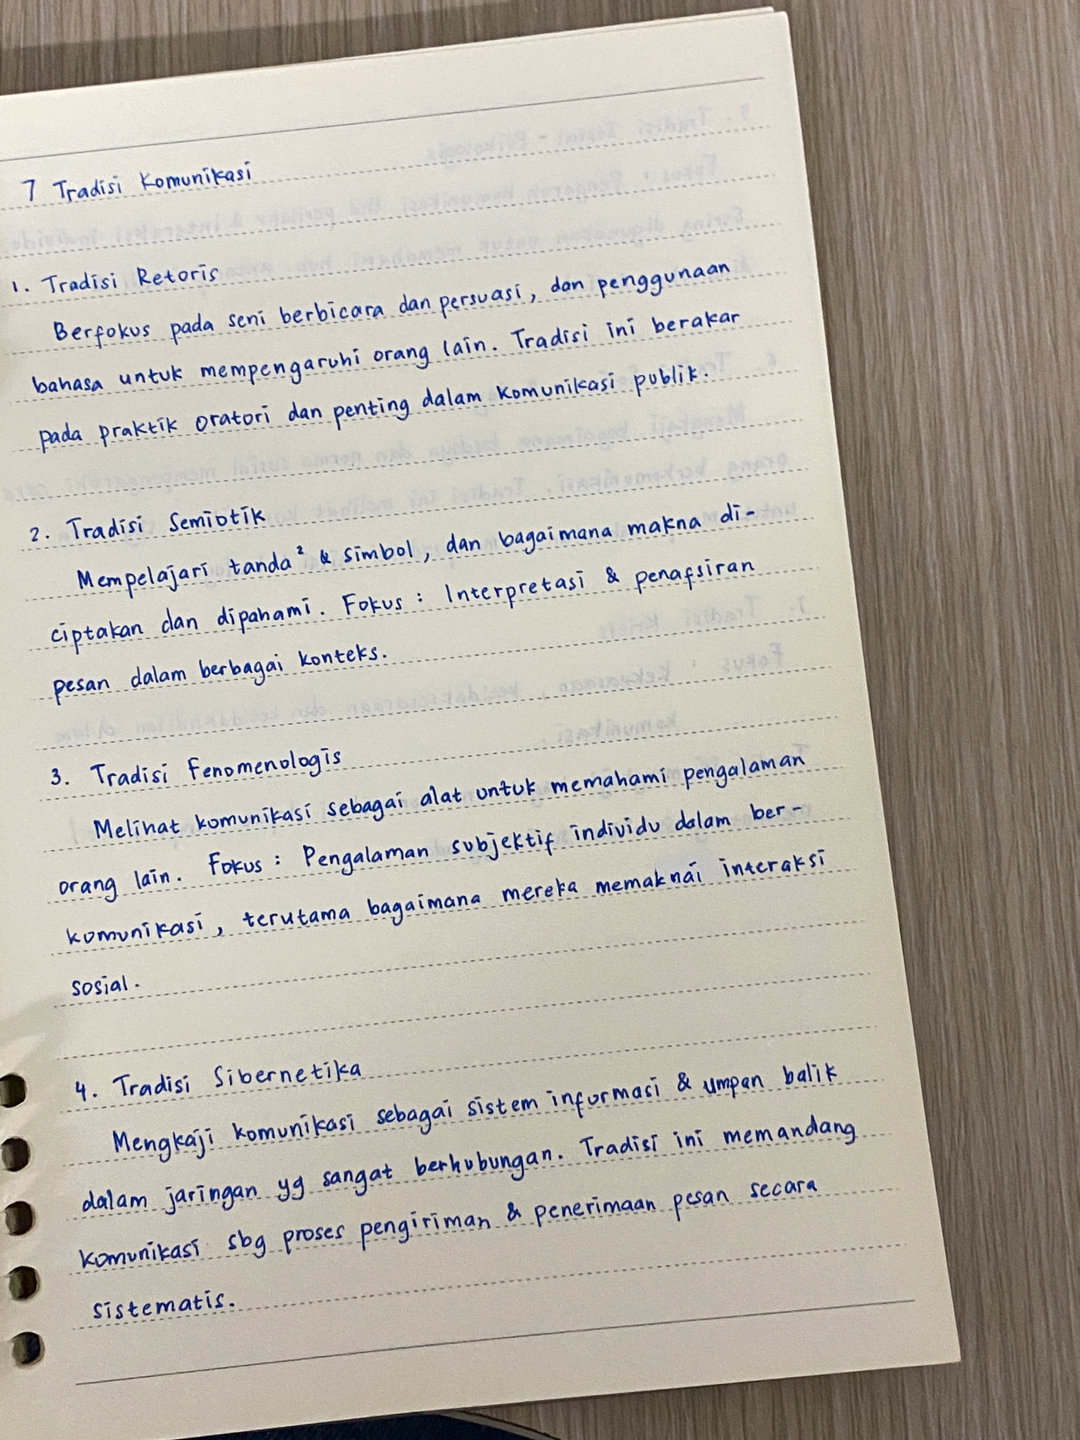 7 Tradisi Komunikasi
1. Tradisi Retoris
Berfokus pada seni berbicara dan persuasi, dan penggunaan
bahasa untuk mempengaruhi orang lain. Tradisi ini berakar
pada praktik oratori dan penting dalam komunikasi publik.
2. Tradisi Semiotik
Mempelajari tanda² & simbol, dan bagaimana makna di-
ciptakan dan dipahami. Fokus : Interpretasi & penafsiran
pesan dalam berbagai konteks.
3. Tradisi Fenomenologis
Melihat komunikasi sebagai alat untuk memahami pengalaman
orang lain. Fokus : Pengalaman subjektif individu dalam ber-
komunikasi, terutama bagaimana mereka memaknai interaksi
sosial.
4. Tradisi Sibernetika
Mengkaji komunikasi sebagai sistem informasi & umpan balik
dalam jaringan yg sangat berhubungan. Tradisi ini memandang
komunikasi sbg proses pengiriman & penerimaan pesan secara
sistematis.